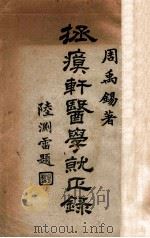 周禹锡著
拯瘼軒醫學就正錄
陸淵雷題